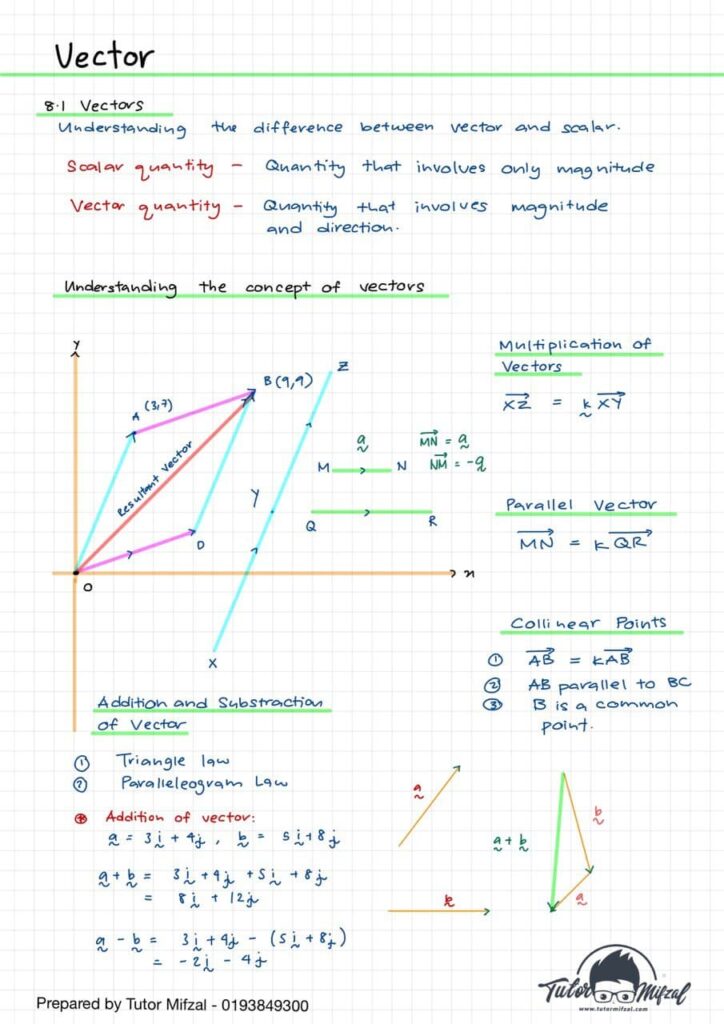 Vector
8.1 Vectors
Understanding the difference between vector and scalar.
Scalar quantity - Quantity that involves only magnitude
Vector quantity - Quantity that involves magnitude
and direction.
Understanding the concept of vectors
y
A (3,7)
B (9,9)
Resultant Vector
D
O
x
Z
Y
X
a
M N
MN = a
NM = -a
Q R
Multiplication of
Vectors
XZ = k XY
Parallel Vector
MN = k QR
Collinear Points
① AB = kAB
② AB parallel to BC
③ B is a common
point.
Addition and Substraction
of Vector
① Triangle law
② Paralleleogram Law
Addition of vector:
a = 3i + 4j , b = 5i + 8j
a + b = 3i + 4j + 5i + 8j
= 8i + 12j
a - b = 3i + 4j - (5i + 8j)
= -2i - 4j
a
b
a + b
b
a
Prepared by Tutor Mifzal - 0193849300
Tutor Mifzal
www.tutormifzal.com